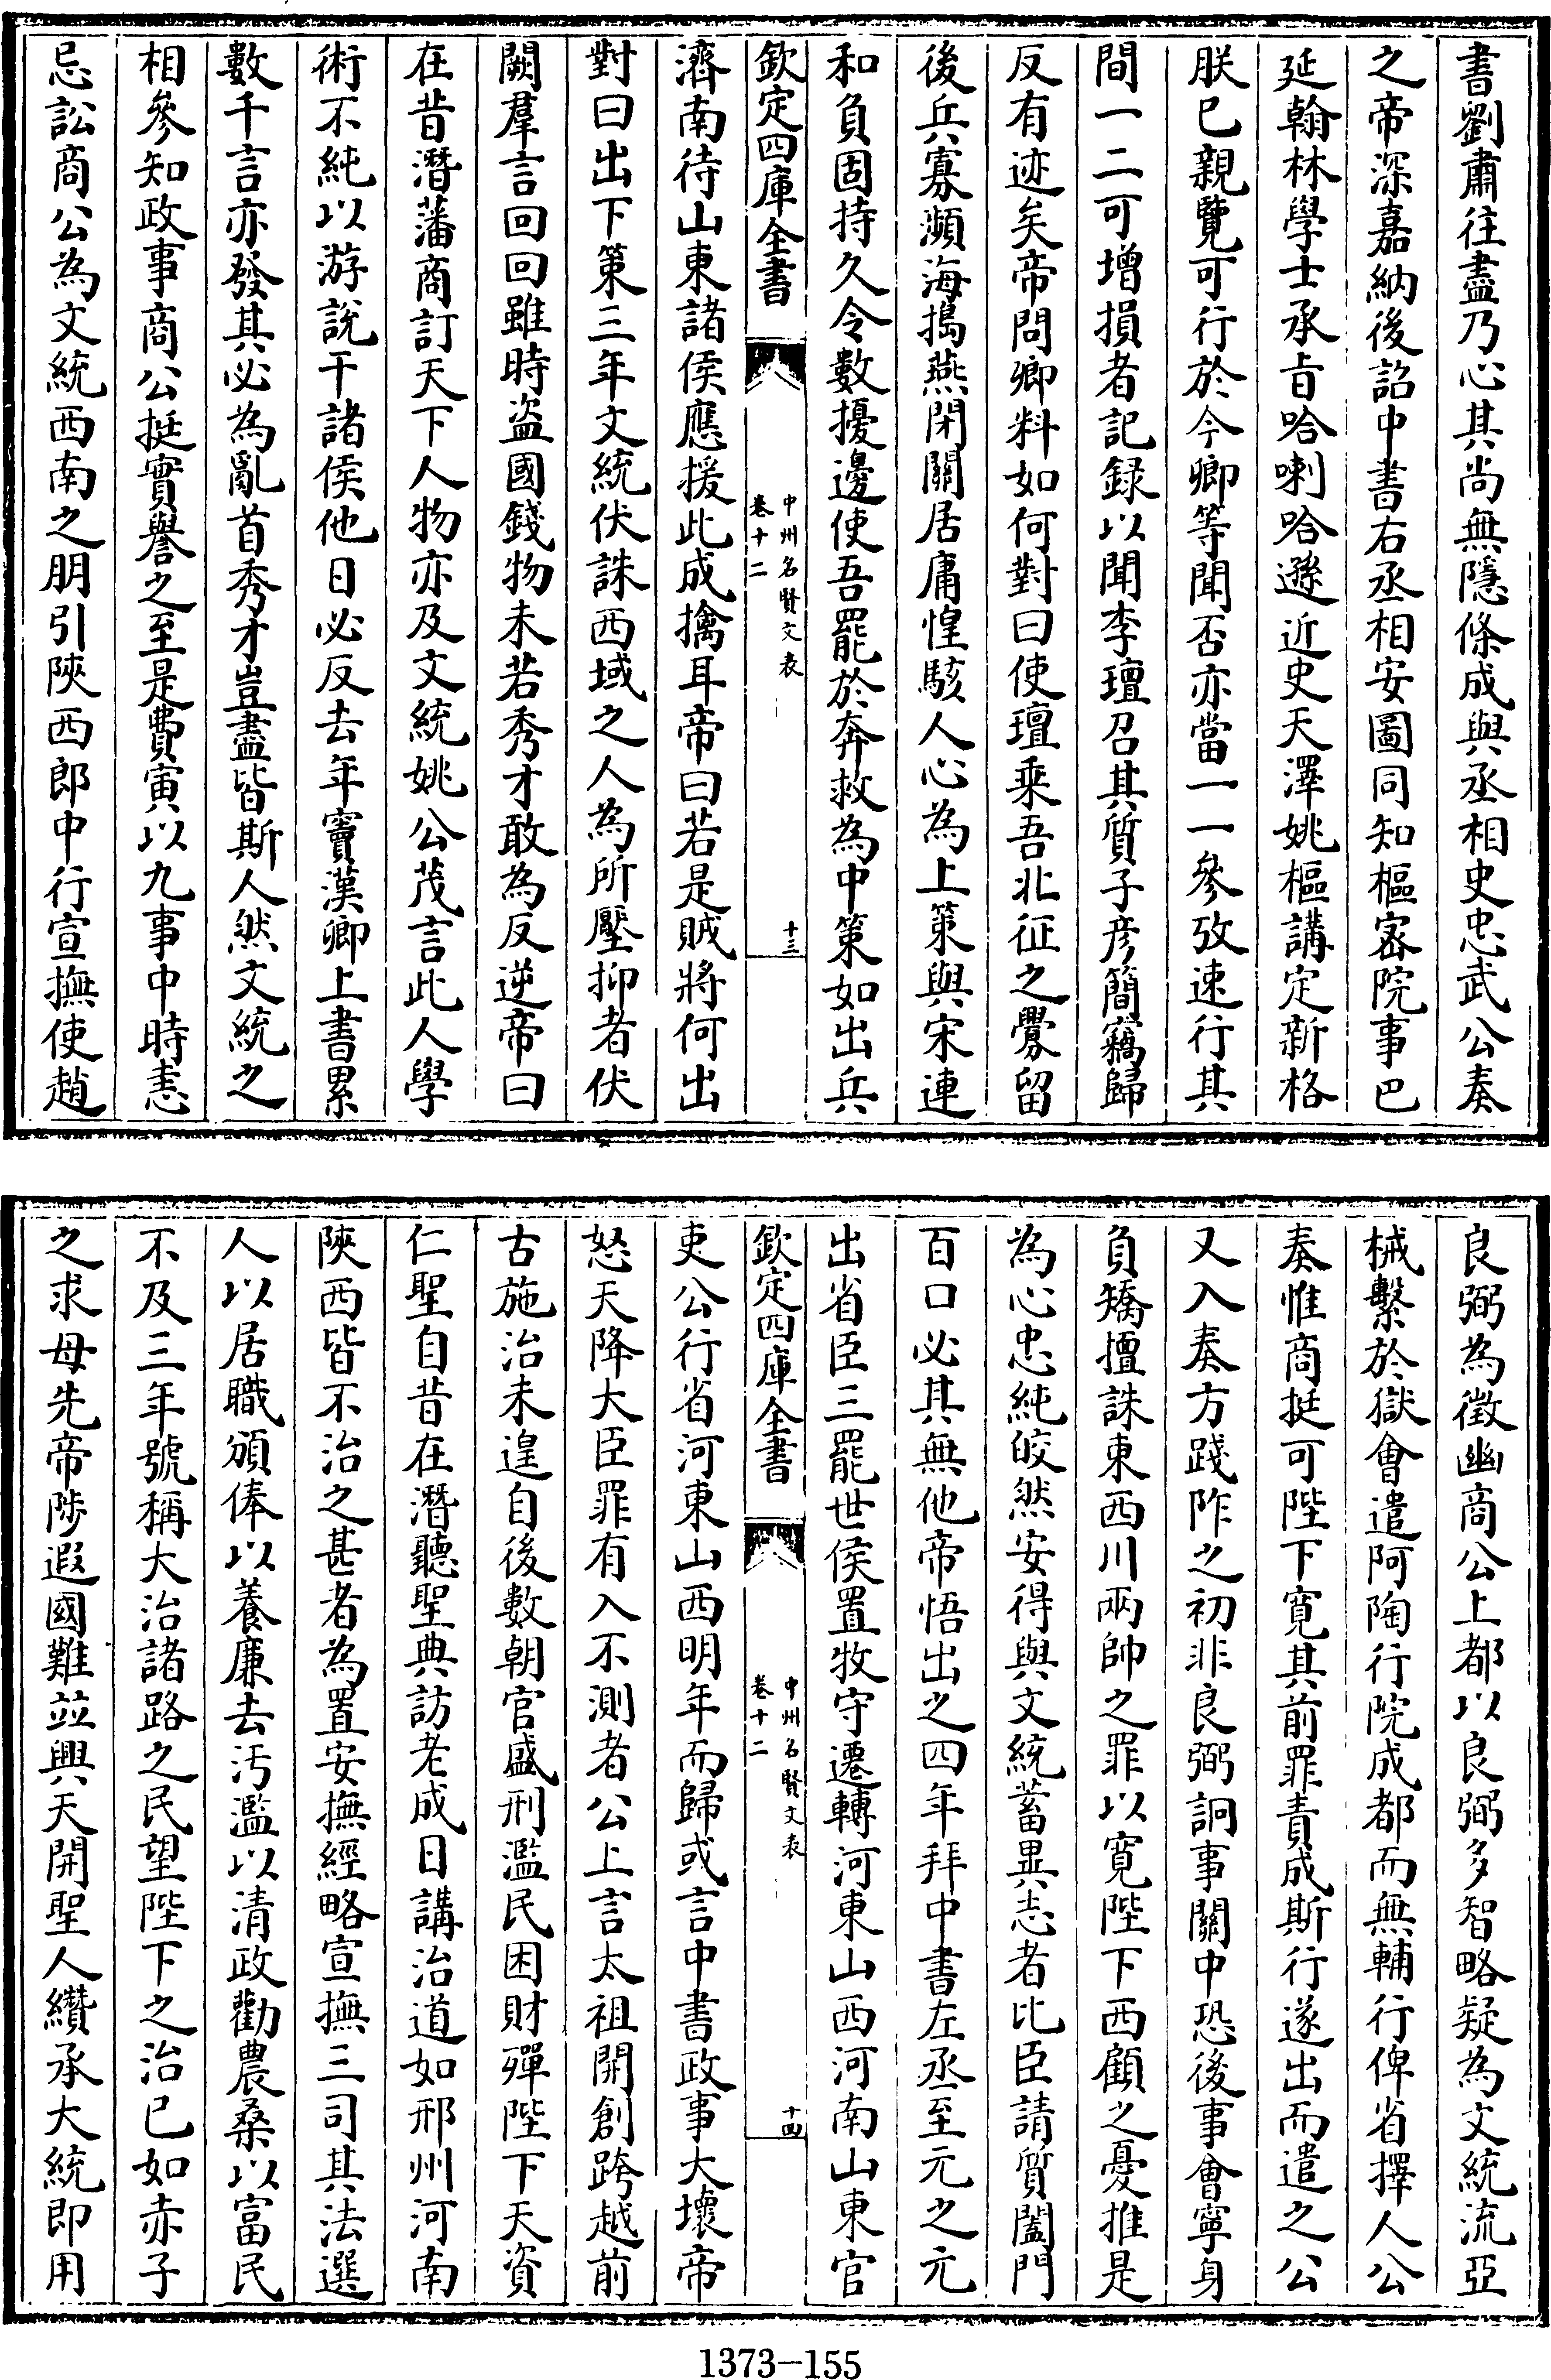 書劉肅往盡乃心其尚無隱條成與丞相史忠武公奏
之帝深嘉納後詔中書右丞相安圖同知樞密院事巴
延翰林學士承旨哈喇哈遜近史天澤姚樞講定新格
朕已親覽可行於今卿等聞否亦當一一參攷速行其
間一二可增損者記録以聞李璮召其質子彦簡竊歸
反有迹矣帝問卿料如何對曰使璮乘吾北征之釁留
後兵寡瀕海搗燕閉關居庸惶駭人心為上策與宋連
和負固持久令數擾邊使吾罷於奔救為中策如出兵
欽定四庫全書
中州名賢文表
卷十二
十三
濟南待山東諸侯應援此成擒耳帝曰若是賊將何出
對曰出下策三年文統伏誅西域之人為所壓抑者伏
闕羣言回回雖時盜國錢物未若秀才敢為反逆帝曰
在昔潛藩商訂天下人物亦及文統姚公茂言此人學
術不純以游說干諸侯他日必反去年竇漢卿上書累
數千言亦發其必為亂首秀才豈盡皆斯人然文統之
相參知政事商公挺實譽之至是費寅以九事中時恚
忌訟商公為文統西南之朋引陝西郎中行宣撫使趙
良弼為徵幽商公上都以良弼多智略疑為文統流亞
械繫於獄會遣阿陶行院成都而無輔行俾省擇人公
奏惟商挺可陛下寛其前罪責成斯行遂出而遣之公
又入奏方踐阼之初非良弼詗事關中恐後事會寧身
負矯擅誅東西川兩帥之罪以寛陛下西顧之憂推是
為心忠純皎然安得與文統蓄異志者比臣請質闔門
百口必其無他帝悟出之四年拜中書左丞至元之元
出省臣三罷世侯置牧守遷轉河東山西河南山東官
欽定四庫全書
中州名賢文表
卷十二
十四
吏公行省河東山西明年而歸或言中書政事大壞帝
怒天降大臣罪有入不測者公上言太祖開創跨越前
古施治未遑自後數朝官盛刑濫民困財殫陛下天資
仁聖自昔在潛聽聖典訪老成日講治道如邢州河南
陝西皆不治之甚者為置安撫經略宣撫三司其法選
人以居職頒俸以養廉去汚濫以清政勸農桑以富民
不及三年號稱大治諸路之民望陛下之治已如赤子
之求母先帝陟遐國難並興天開聖人纘承大統即用
1373-155